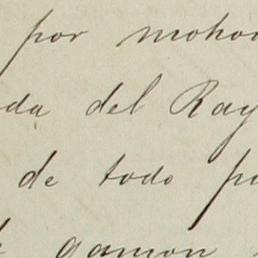 por moho
da del Ray
de todo p
gamon